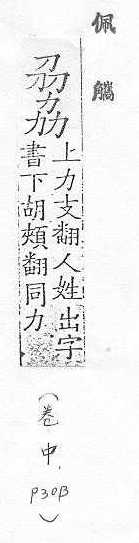 佩觿
刕劦
上力支翻人姓出字
書下胡頰翻同力
(卷中.P30B)